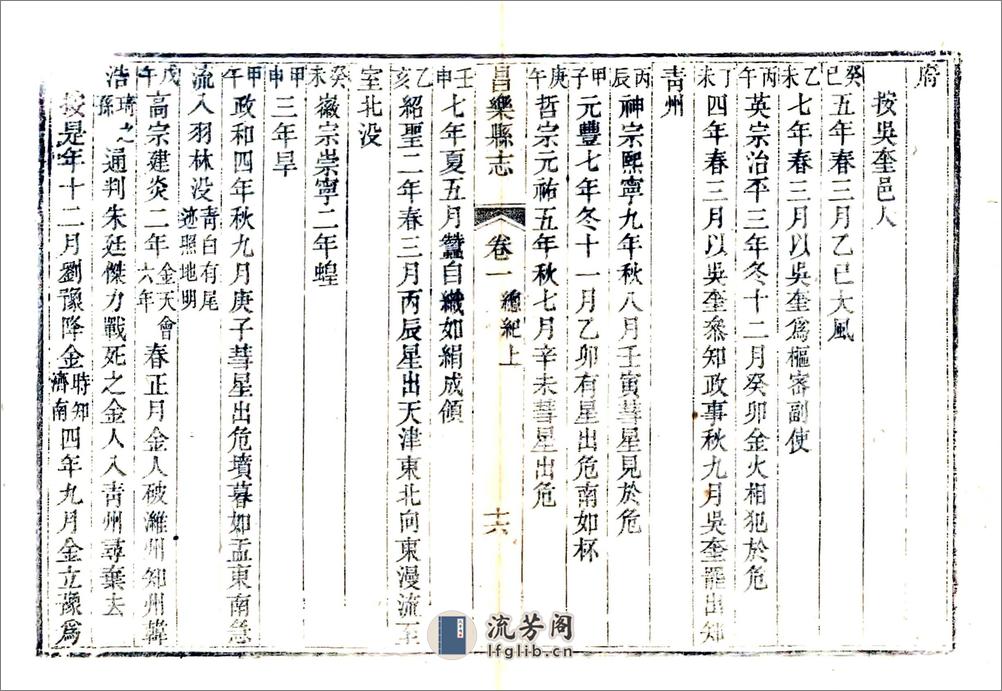 齊
按吳奎邑人
癸巳五年春三月乙巳大風
乙未七年春三月以吳奎爲樞密副使
丙午英宗治平三年冬十二月癸卯金火相犯於危
丁未四年春三月以吳奎叅知政事秋九月吳奎罷出知
青州
丙辰神宗熙寧九年秋八月壬寅彗星見於危
甲子元豐七年冬十一月乙卯有星出危南如杯
庚午哲宗元祐五年秋七月辛未彗星出危
昌樂縣志 卷一 總紀上 十六
壬申七年夏五月蠶自織如絹成領
乙亥紹聖二年春三月丙辰星出天津東北向東漫流至
室北没
癸未徽宗崇寧二年蝗
甲申三年旱
甲午政和四年秋九月庚子彗星出危墳暮如盂東南急
流入羽林没青白有尾迹照地明
戊申高宗建炎二年金天會六年春正月金人破濰州知州韓
浩琦之孫通判朱廷傑力戰死之金人入青州尋棄去
按是年十二月劉豫降金時知濟南四年九月金立豫爲
流芳阁
lfglib.cn